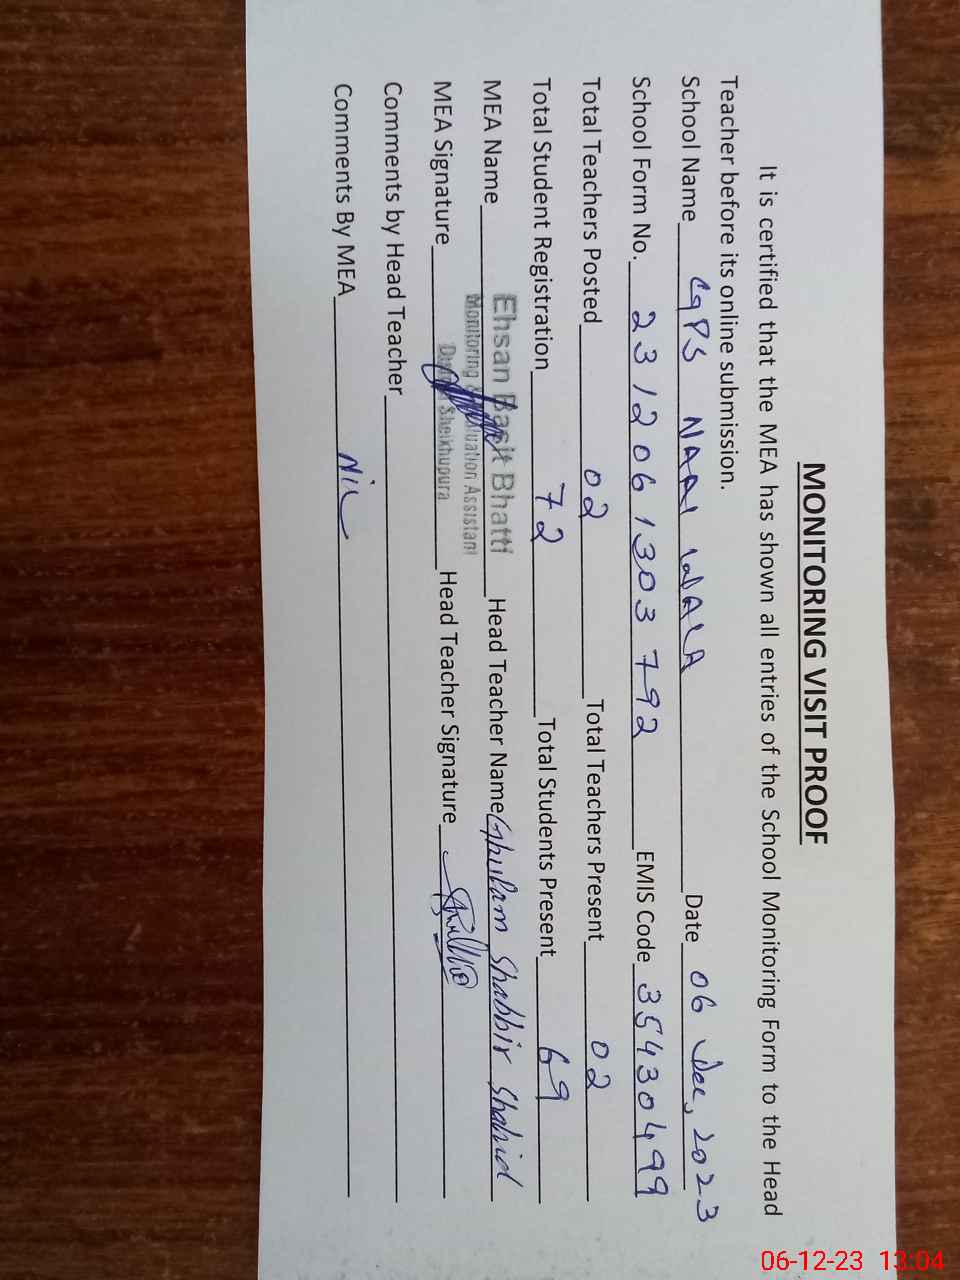 MONITORING VISIT PROOF
It is certified that the MEA has shown all entries of the School Monitoring Form to the Head
Teacher before its online submission.
School Name GPS NAAN WALA Date 06 Dec, 2023
School Form No. 2312061303792 EMIS Code 35430499
Total Teachers Posted 02 Total Teachers Present 02
Total Student Registration 72 Total Students Present 69
MEA Name Ehsan Basit Bhatti Head Teacher Name Ghulam Shabbir Shahid
Monitoring & Evaluation Assistant
MEA Signature District Sheikhupura Head Teacher Signature
Comments by Head Teacher
Comments By MEA Nil
06-12-23 13:04